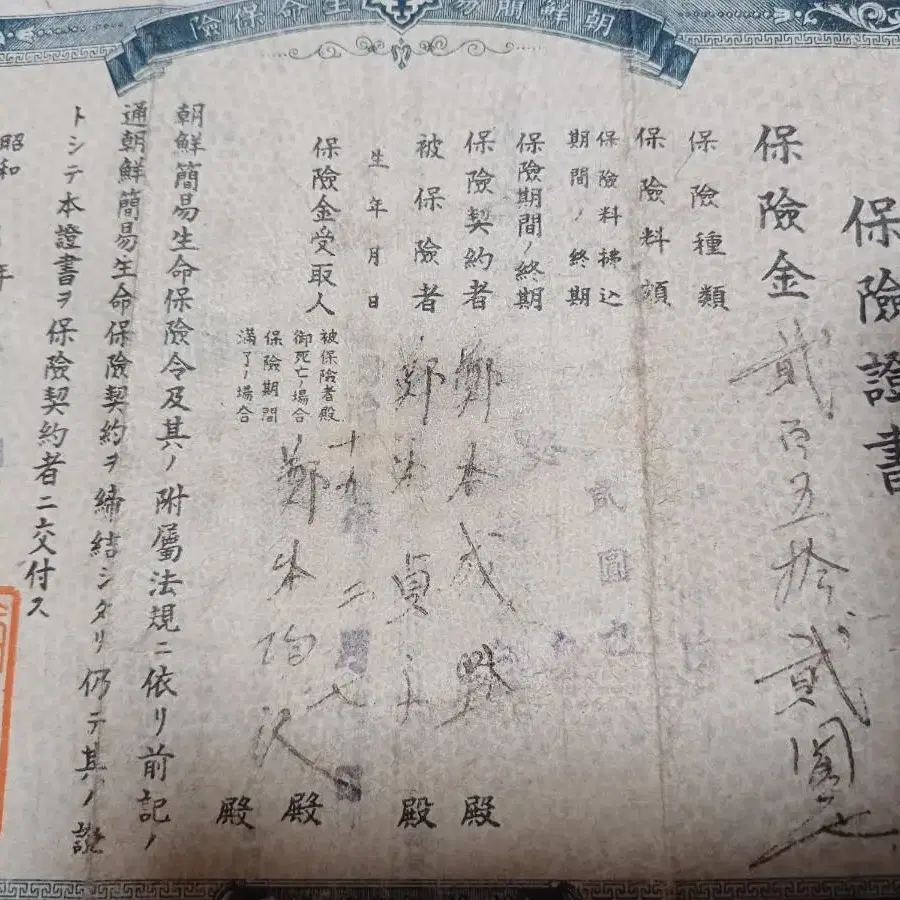 險保命生易簡鮮朝
保險證書
保險金 貳百五拾貳圓也
保險種類
保險料額 貳圓也
保險料拂込
期間ノ終期
保險期間ノ終期
保險契約者 鄭 殿
被保險者 鄭 貞 殿
生年月日 十九年二月七日
保險金受取人
被保險者殿
御死亡ノ場合 鄭 殿
保險期間
滿了ノ場合 殿
朝鮮簡易生命保險令及其ノ附屬法規ニ依リ前記ノ
通朝鮮簡易生命保險契約ヲ締結シタリ仍テ其ノ證
トシテ本證書ヲ保險契約者ニ交付ス
昭和 年